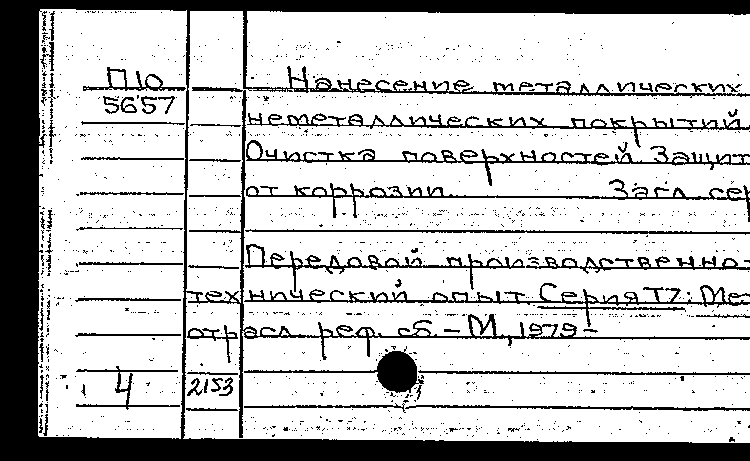 П10 Нанесение металлических
5657 неметаллических покрытий.
Очистка поверхностей. Защит
от коррозии. Загл. сер
Передовой производственно-
технический опыт. Серия Т7: Ме
отрасл. реф. сб. – М., 1979 –
4 2153